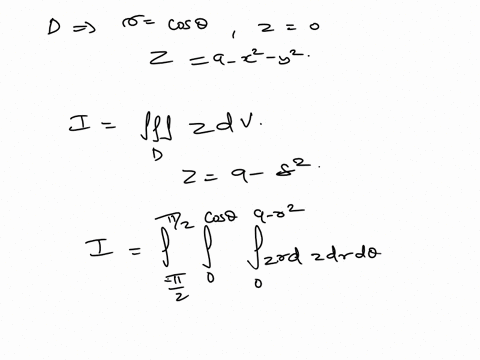 D ⇒ r = cosθ , z = 0
Z = 9 - x² - y².
I = ∭_D z dV.
Z = 9 - r².
I = ∫_{-π/2}^{π/2} ∫_0^{cosθ} ∫_0^{9-r²} z r d z dr dθ